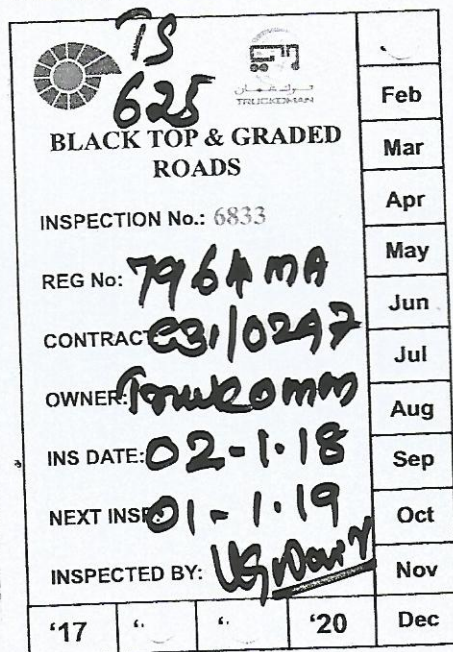 TS
625
شركة ترك عمان
TRUCKOMAN
BLACK TOP & GRADED
ROADS
INSPECTION No.: 6833
REG No: 7964 MA
CONTRACT C31/0247
OWNER: Truckoman
INS DATE: 02-1.18
NEXT INSP: 01-1.19
INSPECTED BY:
Feb
Mar
Apr
May
Jun
Jul
Aug
Sep
Oct
Nov
Dec
'17 '20